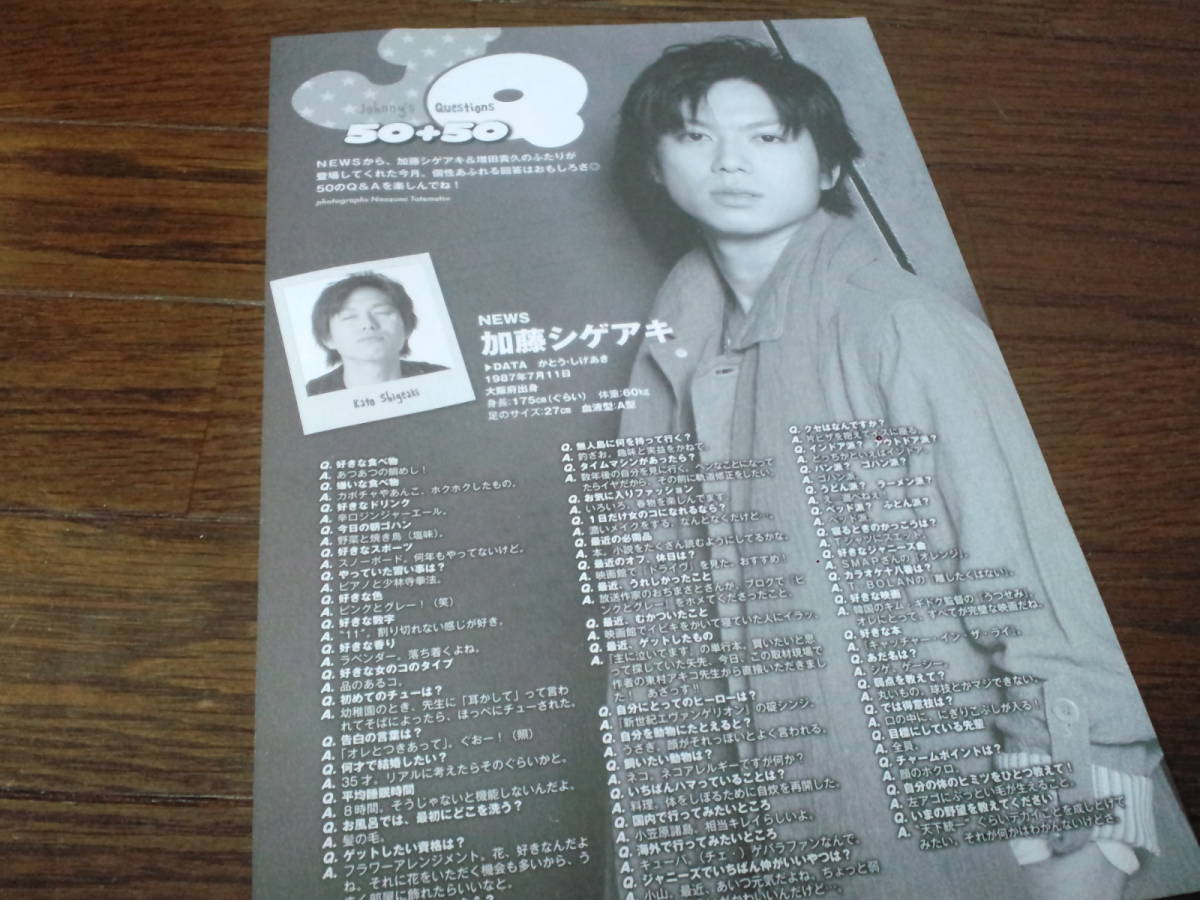 Johnny's Questions
50+50
NEWSから、加藤シゲアキ&増田貴久のふたりが
登場してくれた今月、個性あふれる回答はおもしろさ◎
50のQ&Aを楽しんでね!
photographs
Kato Shigeaki
NEWS
加藤シゲアキ
▶DATA かとう・しげあき
1987年7月11日
大阪府出身
身長:175㎝(ぐらい) 体重:60㎏
足のサイズ:27㎝ 血液型:A型
Q. 好きな食べ物
A. あつあつの鯛めし!
Q. 嫌いな食べ物
A. カボチャやあんこ、ホクホクしたもの。
Q. 好きなドリンク
A. 辛口ジンジャーエール。
Q. 今日の朝ゴハン
A. 野菜と焼き鳥(塩味)。
Q. 好きなスポーツ
A. スノーボード。何年もやってないけど。
Q. やっていた習い事は?
A. ピアノと少林寺拳法。
Q. 好きな色
A. ピンクとグレー!(笑)
Q. 好きな数字
A. “11”。割り切れない感じが好き。
Q. 好きな香り
A. ラベンダー。落ち着くよね。
Q. 好きな女のコのタイプ
A. 品のあるコ。
Q. 初めてのチューは?
A. 幼稚園のとき、先生に「耳かして」って言わ
れてそばによったら、ほっぺにチューされた。
Q. 告白の言葉は?
A. 「オレとつきあって」。ぐおー!(照)
Q. 何才で結婚したい?
A. 35才。リアルに考えたらそのぐらいかと。
Q. 平均睡眠時間
A. 8時間。そうじゃないと機能しないんだよ。
Q. お風呂では、最初にどこを洗う?
A. 髪の毛。
Q. ゲットしたい資格は?
A. フラワーアレンジメント。花、好きなんだよ
ね。それに花をいただく機会も多いから、う
まく部屋に飾れたらいいなと。
Q. 無人島に何を持って行く?
A. 釣ざお。趣味と実益をかねて。
Q. タイムマシンがあったら?
A. 数年後の自分を見に行く。ヘンなことになって
たらイヤだから、その前に軌道修正をしたい。
Q. お気に入りファッション
A. いろいろ。春物を楽しんでます。
Q. 1日だけ女のコになれるなら?
A. 濃いメイクをする。なんとなくだけど…。
Q. 最近の必需品
A. 本。小説をたくさん読むようにしてるかな。
Q. 最近のオフ、休日は?
A. 映画館で『ドライヴ』を見た。おすすめ!
Q. 最近、うれしかったこと
A. 放送作家のおちまさとさんが、ブログで『ピ
ンクとグレー』をホメてくださったこと。
Q. 最近、むかついたこと
A. 映画館でイビキをかいて寝ていた人にイラッ。
Q. 最近、ゲットしたもの
A. 『主に泣いてます』の単行本。買いたいと思
って探していた矢先、今日、この取材現場で
作者の東村アキコ先生から直接いただきまし
た! あざっす!!
Q. 自分にとってのヒーローは?
A. 『新世紀エヴァンゲリオン』の碇シンジ。
Q. 自分を動物にたとえると?
A. うさぎ。顔がそれっぽいとよく言われる。
Q. 飼いたい動物は?
A. ネコ。ネコアレルギーですが何か?
Q. いちばんハマっていることは?
A. 料理。体をしぼるために自炊を再開した。
Q. 国内で行ってみたいところ
A. 小笠原諸島。相当キレイらしいよ。
Q. 海外で行ってみたいどころ
A. キューバ。(チェ・)ゲバラファンなんで。
Q. ジャニーズでいちばん仲がいいやつは?
A. 小山。最近、あいつ元気だよね。ちょっと弱
Q. クセはなんですか?
A. 片ヒザを抱えてイスに座る。
Q. インドア派? アウトドア派?
A. どっちかといえばインドア。
Q. パン派? ゴハン派?
A. ゴハン派。
Q. うどん派? ラーメン派?
A. …選べねぇ。
Q. ベッド派? ふとん派?
A. ベッド派。
Q. 寝るときのかっこうは?
A. Tシャツにスエット。
Q. 好きなジャニーズ曲
A. SMAPさんの『オレンジ』。
Q. カラオケ十八番は?
A. T-BOLANの『離したくはない』。
Q. 好きな映画
A. 韓国のキム・ギドク監督の『うつせみ』。
オレにとって、すべてが完璧な映画だね。
Q. 好きな本
A. 『キャッチャー・イン・ザ・ライ』。
Q. あだ名は?
A. シゲ、ゲーシー。
Q. 弱点を教えて?
A. 丸いもの。球技とかマジできない。
Q. では得意技は?
A. 口の中に、にぎりこぶしが入る!
Q. 目標にしている先輩
A. 全員。
Q. チャームポイントは?
A. 顔のホクロ。
Q. 自分の体のヒミツをひとつ教えて!
A. 左アゴにぶっとい毛が生えること。
Q. いまの野望を教えてください!
A. “天下統一”ぐらいデカイことを成しとげて
みたい。それが何かはわかんないけどさ。